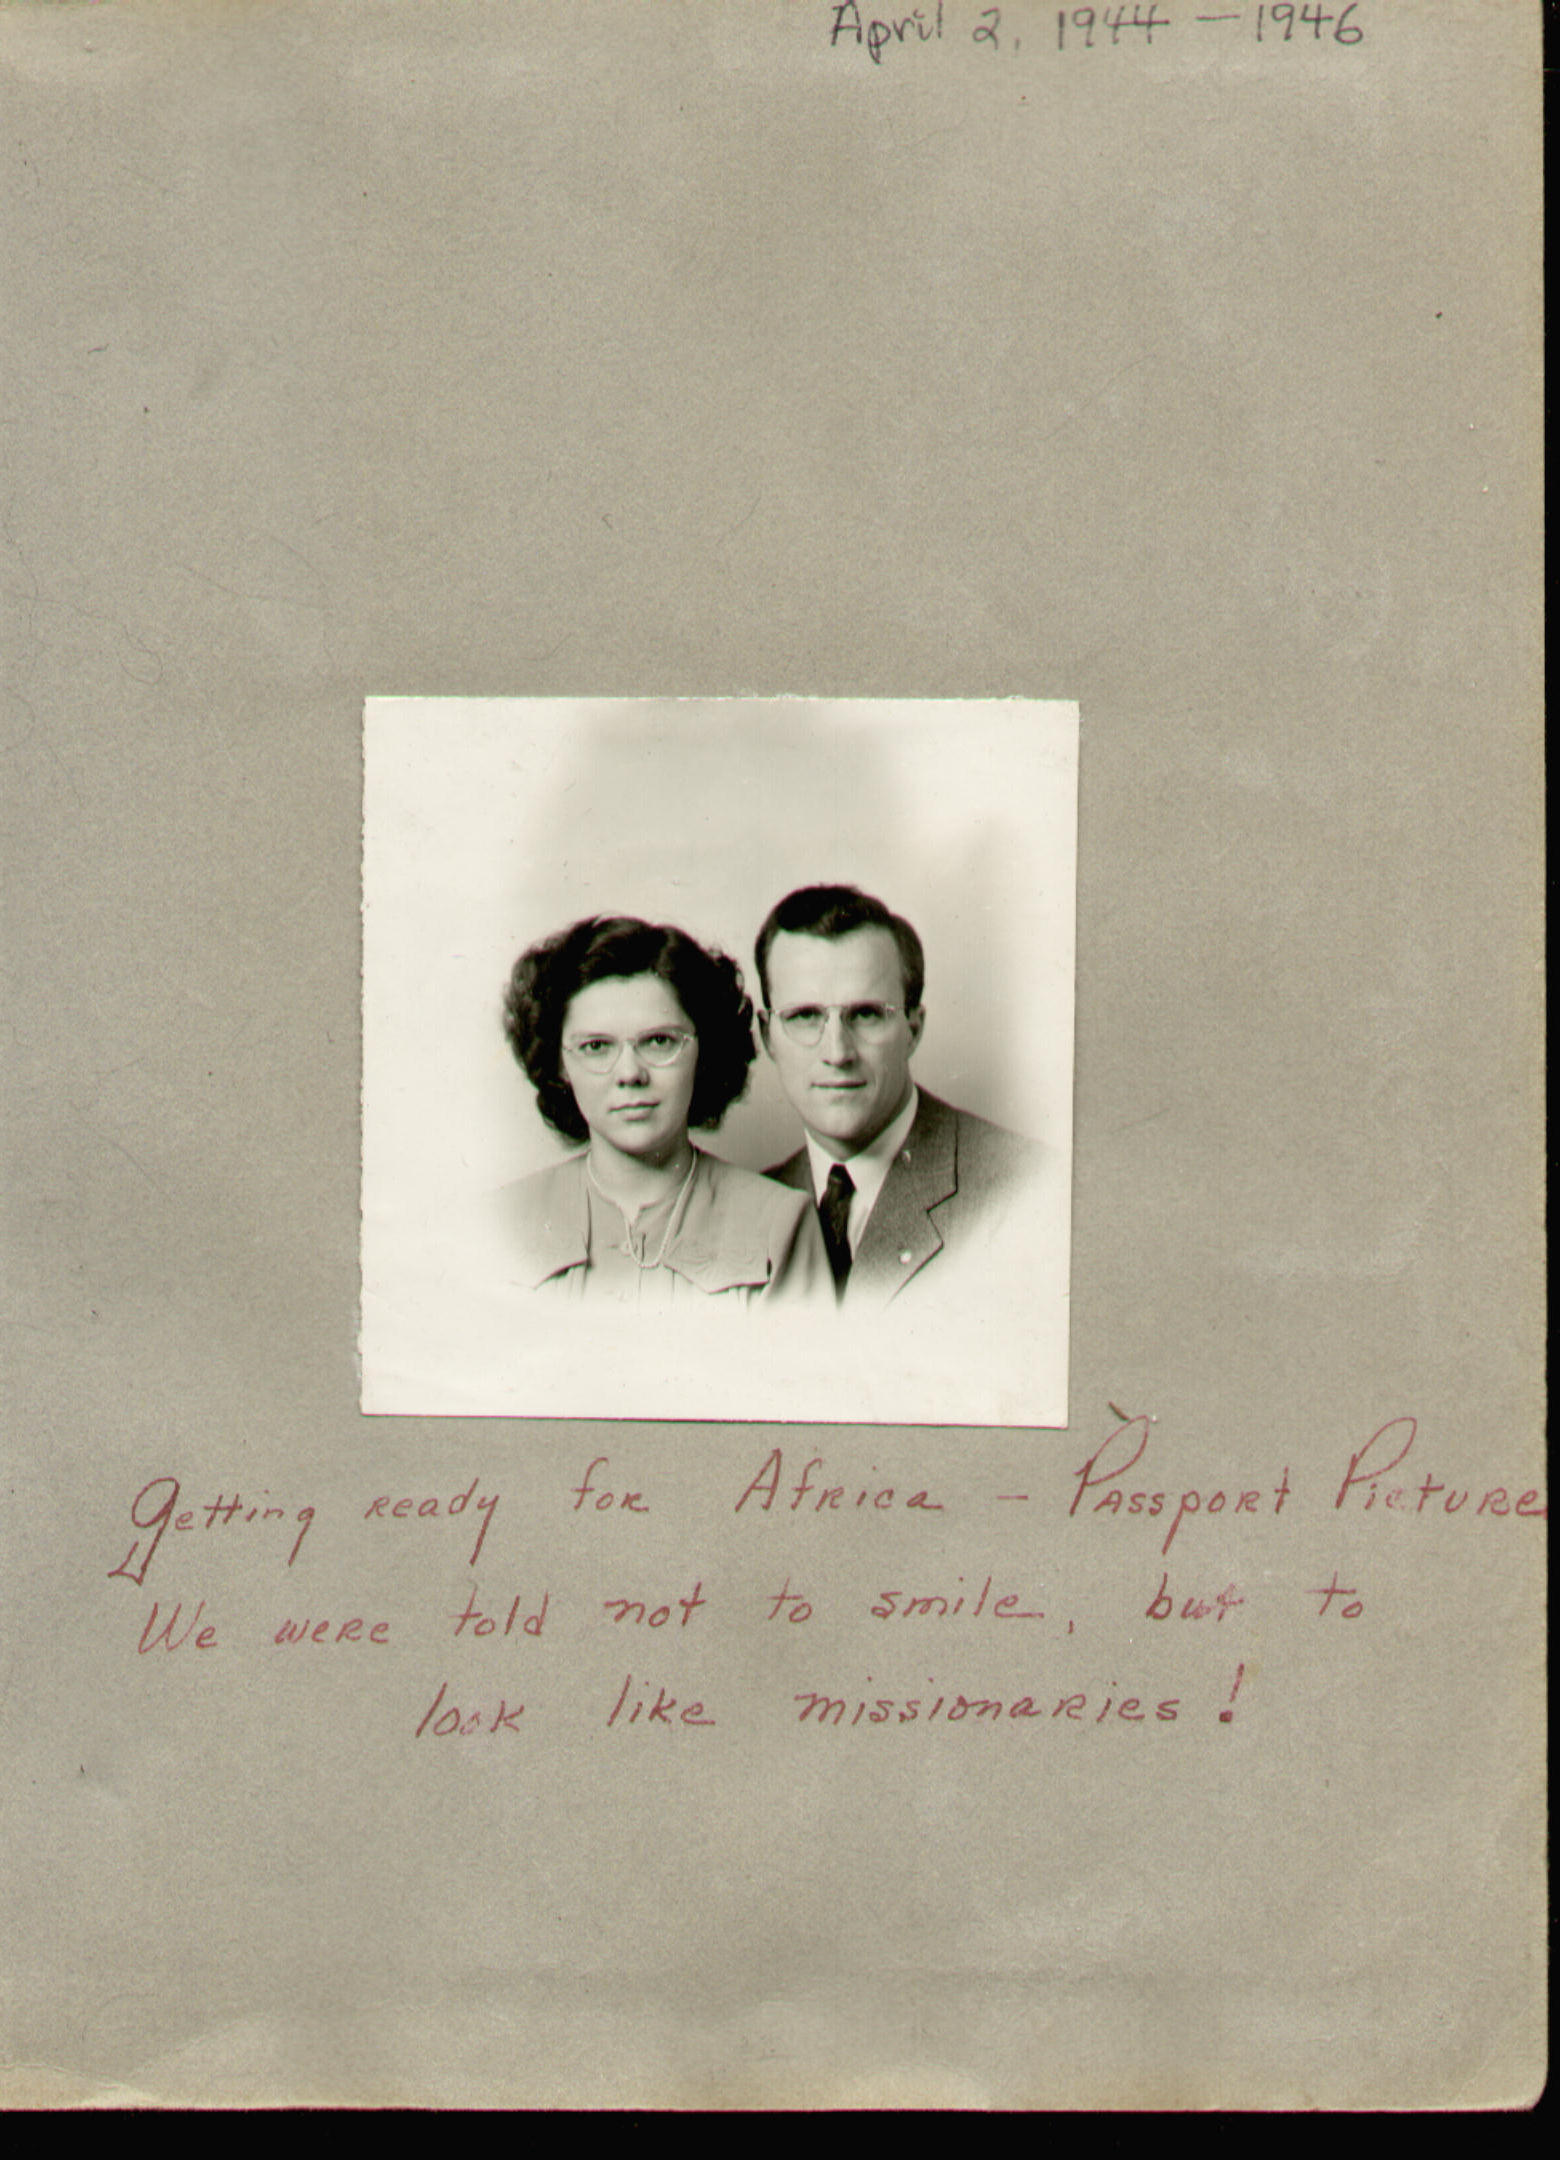 April 2, 1944 — 1946
Getting ready for Africa — Passport Picture
We were told not to smile, but to
look like missionaries!